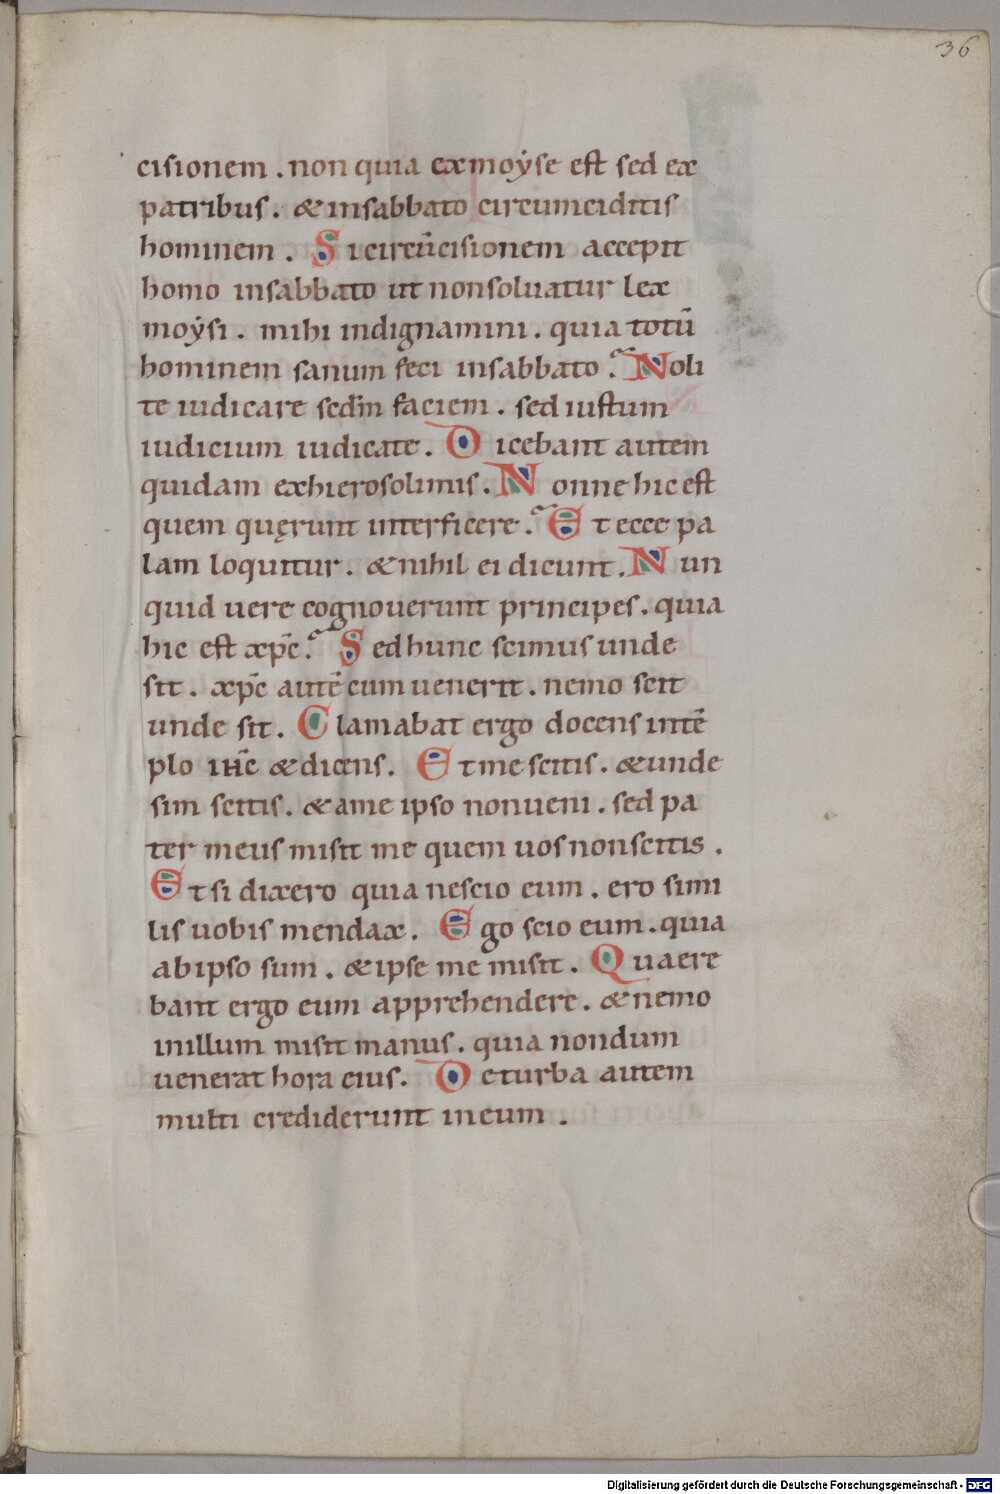 36
cisionem . non quia ex moẏse est sed ex
patribus . & in sabbato circumciditis
hominem . Si circūcisionem accepit
homo in sabbato ut non soluatur lex
moẏsi . mihi indignamini . quia totū
hominem sanum feci in sabbato ? Noli
te iudicare sedm̄ faciem . sed iustum
iudicium iudicate . Dicebant autem
quidam ex hierosolimis . Nonne hic est
quem quęrunt interficere ? Et ecce pa
lam loquitur . & nihil ei dicunt . Nun
quid uere cognouerunt principes . quia
hic est xp̄c ? Sed hunc scimus unde
sit . xp̄c autē cum uenerit . nemo scit
unde sit . Clamabat ergo docens in tē
plo ih̄c & dicens . Et me scitis . & unde
sim scitis . & a me ipso non ueni . sed pa
ter meus misit me quem uos non scitis .
Et si dixero quia nescio eum . ero simi
lis uobis mendax . Ego scio eum . quia
ab ipso sum . & ipse me misit . Quaere
bant ergo eum apprehendere . & nemo
in illum misit manus . quia nondum
uenerat hora eius . De turba autem
multi crediderunt in eum .
Digitalisierung gefördert durch die Deutsche Forschungsgemeinschaft - DFG